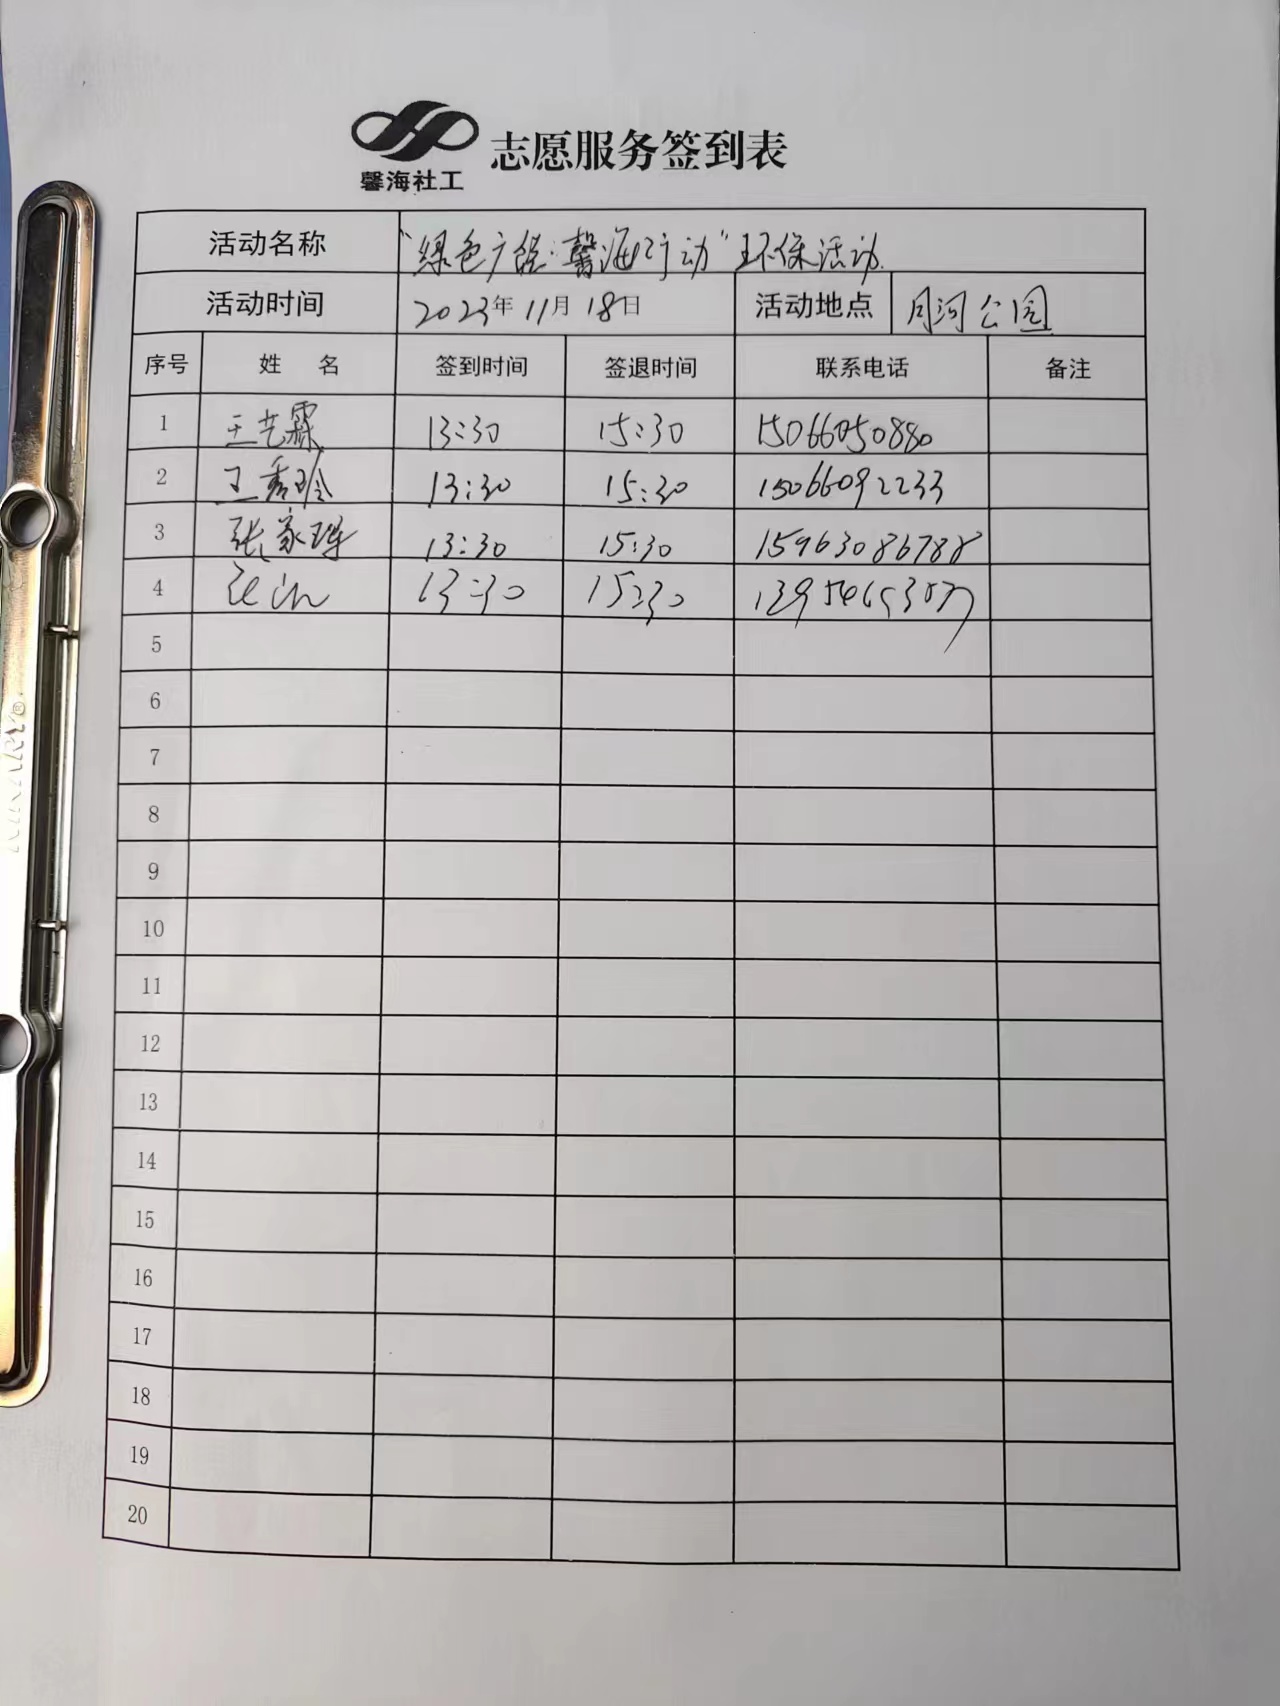 馨海社工 志愿服务签到表
活动名称 “绿色广饶·馨海行动”环保活动
活动时间 2023年11月18日 活动地点 月河公园
序号 姓 名 签到时间 签退时间 联系电话 备注
1 王艺霖 13:30 15:30 15066050880
2 王秀玲 13:30 15:30 15066092233
3 张家瑋 13:30 15:30 15963086788
4 13:30 15:30
5
6
7
8
9
10
11
12
13
14
15
16
17
18
19
20